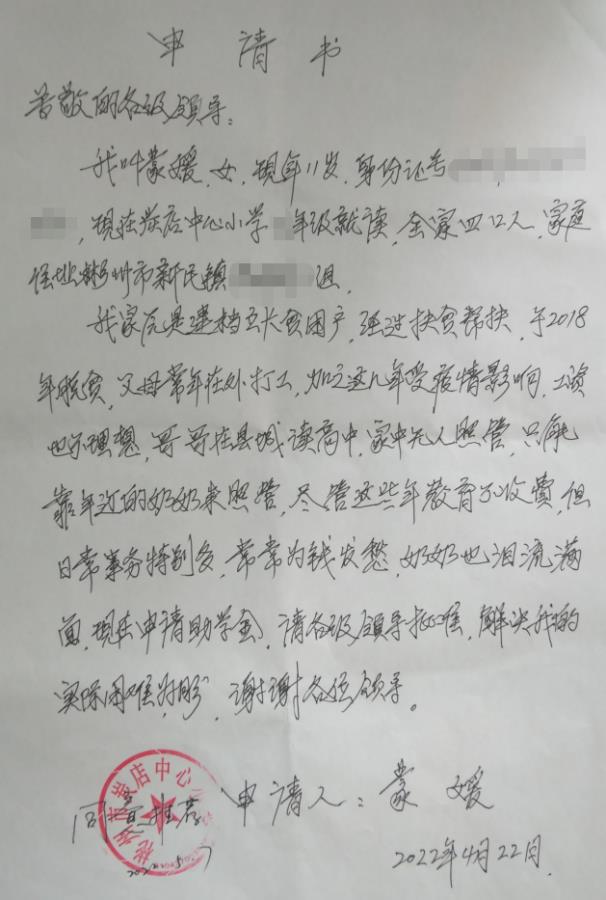 申请书
尊敬的各级领导:
我叫蒙媛,女,现年11岁,身份证号
,现在炭店中心小学 年级就读,全家四口人,家庭
住址彬州市新民镇 组,
我家原是建档立卡贫困户,经过扶贫帮扶,于2018
年脱贫,父母常年在外打工,加之这几年受疫情影响,工资
也不理想,哥哥在县城读高中,家中无人照管,只能
靠年迈的奶奶来照管,尽管这些年教育不收费,但
日常事务特别多,常常为钱发愁,奶奶也泪流满
面,现在申请助学金,请各级领导批准,解决我的
实际困难为盼,谢谢各位领导。
炭店中心
同意推荐 申请人:蒙媛
2022年4月22日.